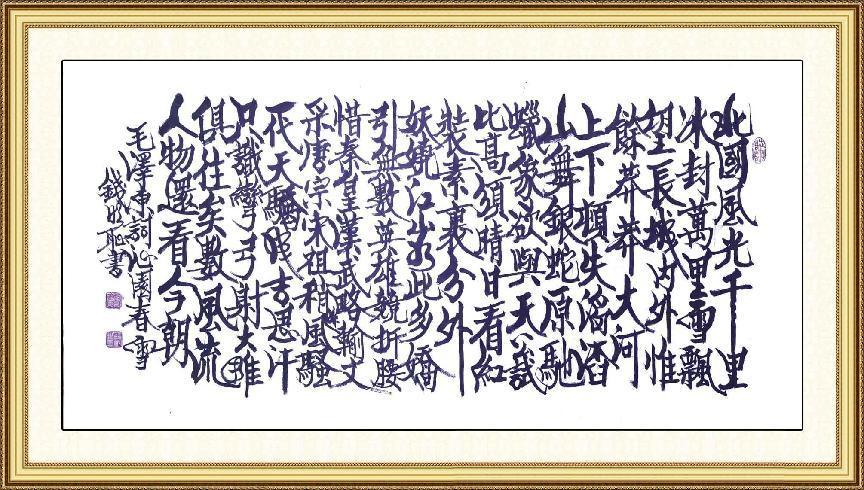 北國風光千里
冰封萬里雪飄
望長城内外惟
餘莽莽大河
上下頓失滔滔
山舞銀蛇原馳
蠟象欲與天公試
比高須晴日看紅
裝素裹分外
妖嬈江山如此多嬌
引無數英雄競折腰
惜秦皇漢武略輸文
采唐宗宋祖稍遜風騷
一代天驕成吉思汗
只識彎弓射大雕
俱往矣數風流
人物還看今朝
毛澤東詞沁園春雪
錢書